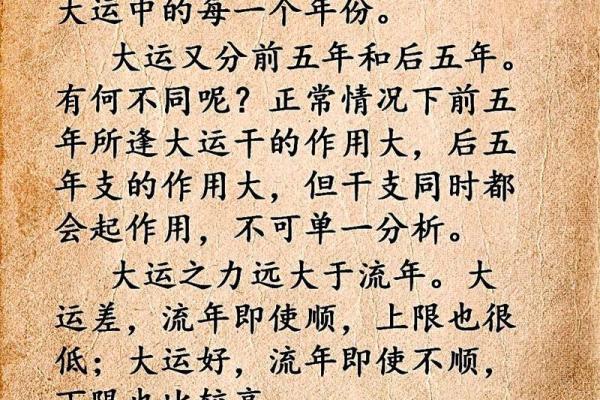 大运中的每一个年份。
大运又分前五年和后五年。
有何不同呢？正常情况下前五
年所逢大运干的作用大，后五
年支的作用大，但干支同时都
会起作用，不可单一分析。
大运之力远大于流年。大
运差，流年即使顺，上限也很
低；大运好，流年即使不顺，
下限也比较高